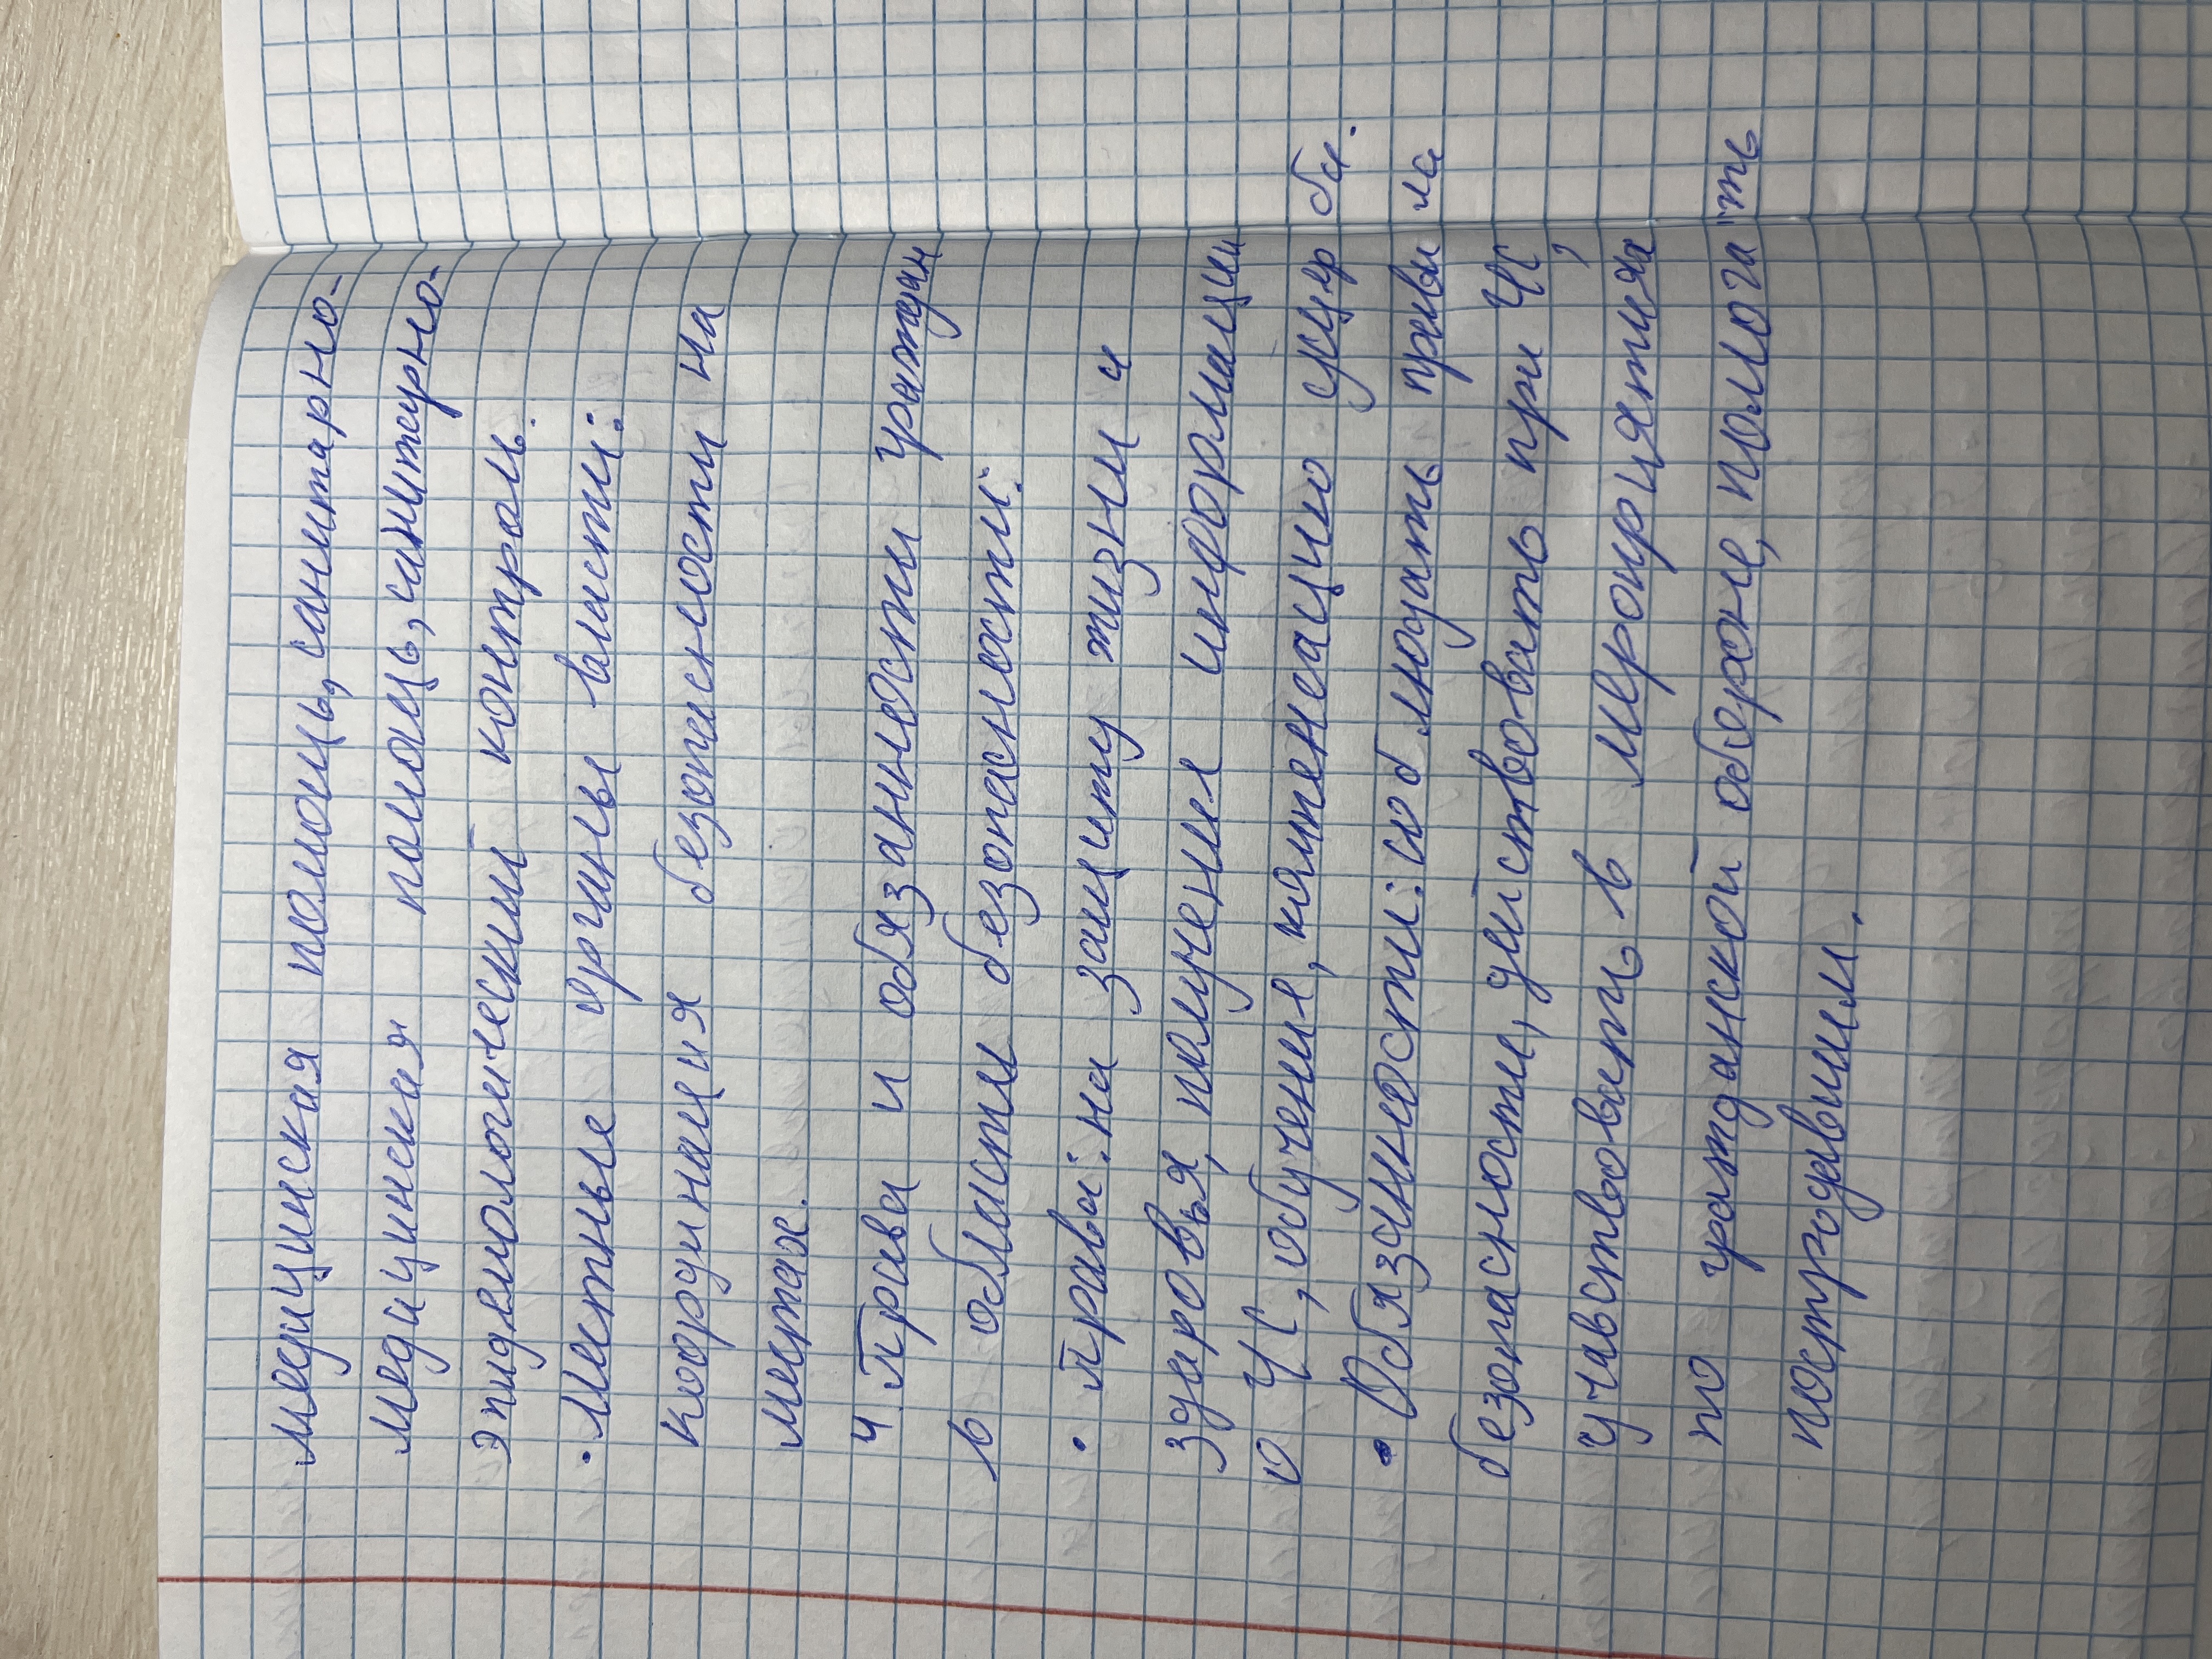 медициская помощь, санитарно-
медицинская помощь, санитерно-
эпидемологический контроль.
· Местные органы власти:
координация безопасности на
местах.
4. Права и обязанности граждан
в области безопасности:
· Права: на защиту жизни и
здоровья, получения информации
о ЧС, обучения, компенсацию ущерба.
· Обязанности: соблюдать правила
безопасности, действовать при ЧС,
учавствовать в мероприятиях
по гражданской обороне, помогать
пострадавшим.